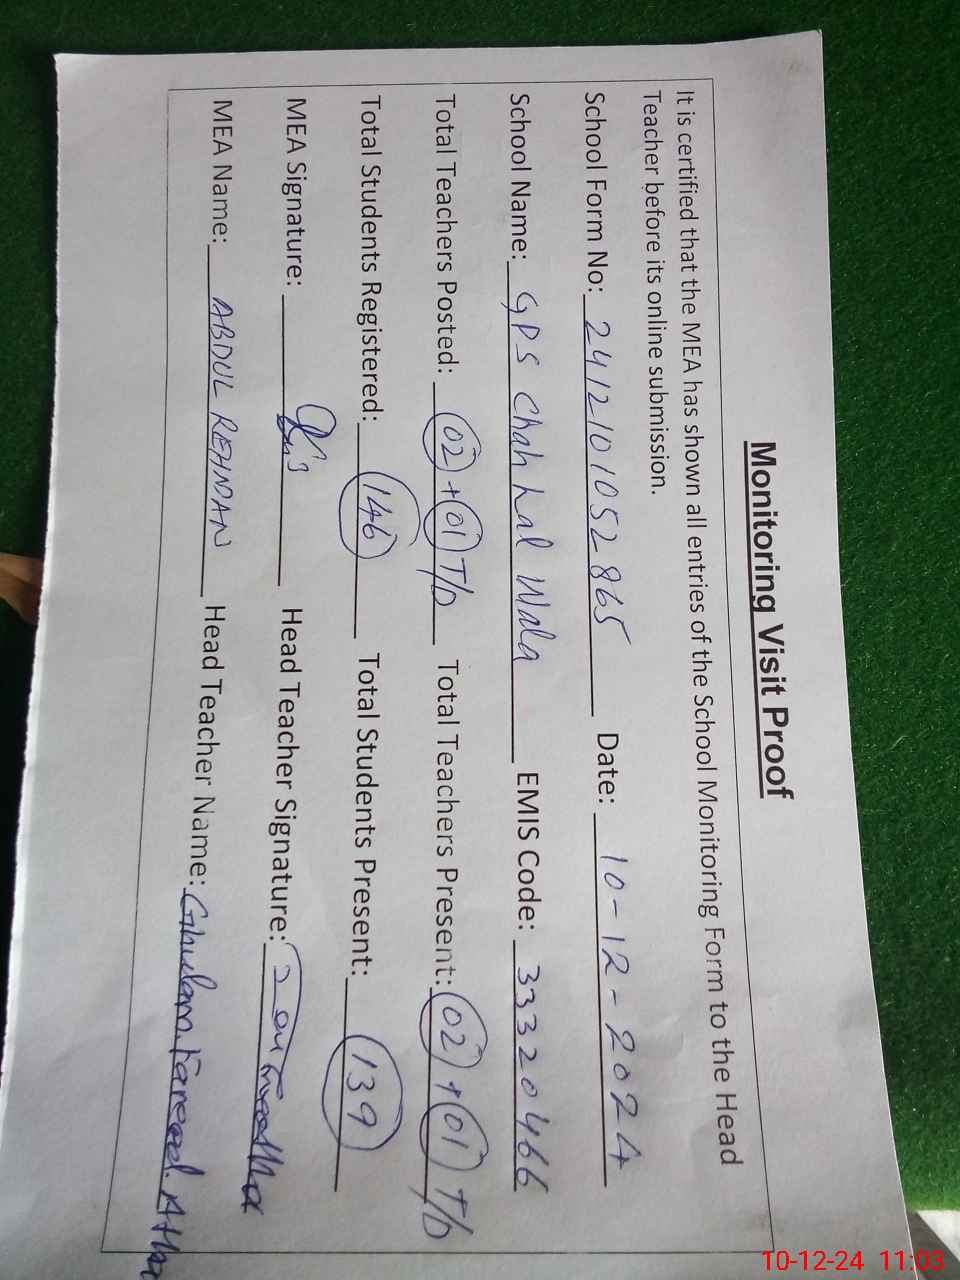 Monitoring Visit Proof
It is certified that the MEA has shown all entries of the School Monitoring Form to the Head
Teacher before its online submission.
School Form No: 2412101052865 Date: 10-12-2024
School Name: GPS Chah Lal Wala EMIS Code: 33320466
Total Teachers Posted: 02 + 01 T/b Total Teachers Present: 02 + 01 T/b
Total Students Registered: 146 Total Students Present: 139
MEA Signature: Head Teacher Signature:
MEA Name: ABDUL REHMAN Head Teacher Name: Ghulam Fareed
10-12-24 11:03